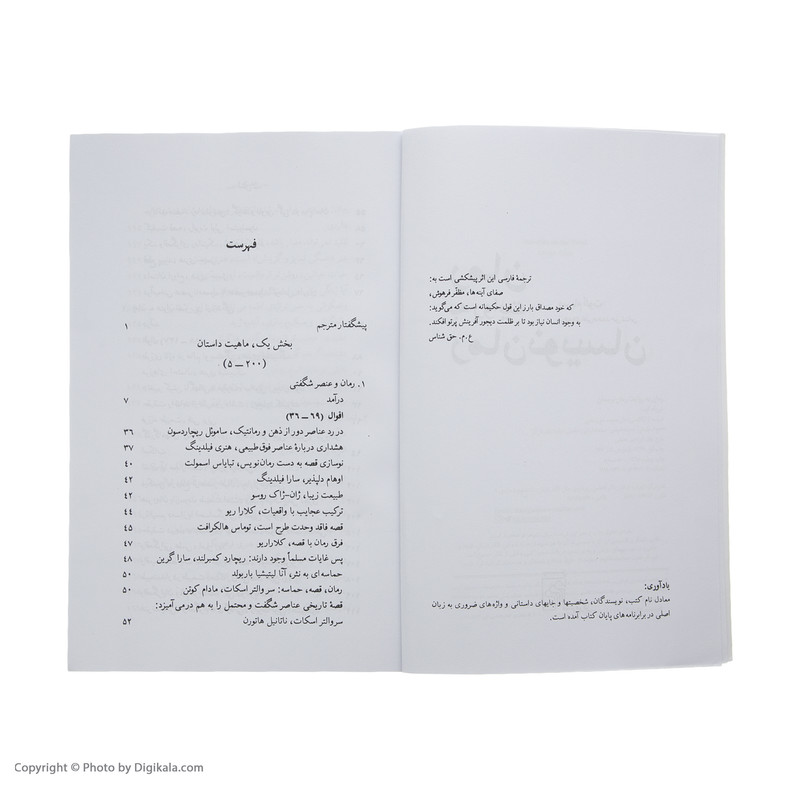 ترجمهٔ فارسی این اثر پیشکشی است به:
صفای آینه‌ها، مظفّر فرهوش،
که خود مصداق بارز این قول حکیمانه است که می‌گوید:
به وجود انسان نیاز بود تا بر ظلمت دیجور آفرینش پرتو افکند.
ع.م. حق شناس
یادآوری:
معادل نام کتب، نویسندگان، شخصیتها و جایهای داستانی و واژه‌های ضروری به زبان
اصلی در برابرنامه‌های پایان کتاب آمده است.
فهرست
پیشگفتار مترجم ۱
بخش یک، ماهیت داستان
(۲۰۰ – ۵)
۱. رمان و عنصر شگفتی
درآمد ۷
اقوال (۶۹ – ۳۶)
در رد عناصر دور از ذهن و رمانتیک، ساموئل ریچاردسون ۳۶
هشداری دربارهٔ عناصر فوق طبیعی، هنری فیلدینگ ۳۷
نوسازی قصه به دست رمان‌نویس، تبایاس اسمولت ۴۰
اوهام دلپذیر، سارا فیلدینگ ۴۲
طبیعت زیبا، ژان-ژاک روسو ۴۲
ترکیب عجایب با واقعیات، کلارا ریو ۴۴
قصه فاقد وحدت طرح است، توماس هالکرافت ۴۵
فرق رمان با قصه، کلارا ریو ۴۷
پس غایات مسلماً وجود دارند: ریچارد کمبرلند، سارا گرین ۴۸
حماسه‌ای به نثر، آنا لیتیشیا باربولد ۵۰
رمان، قصه، حماسه: سر والتر اسکات، مادام کوتن ۵۰
قصهٔ تاریخی عناصر شگفت و محتمل را به هم درمی‌آمیزد:
سر والتر اسکات، ناتانیل هاثورن ۵۲
Copyright © Photo by Digikala.com